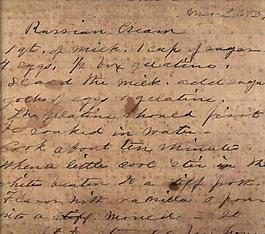 Russian Cream
1 qt. of milk. 1 cup of sugar
4 eggs. ½ box gelatine.
Scald the milk. add sugar
yolks of eggs & gelatine.
The gelatine should first
be soaked in water.
Cook about ten minutes.
When a little cool stir in the
whites beaten to a stiff froth.
Flavor with vanilla & pour
into a mould - It